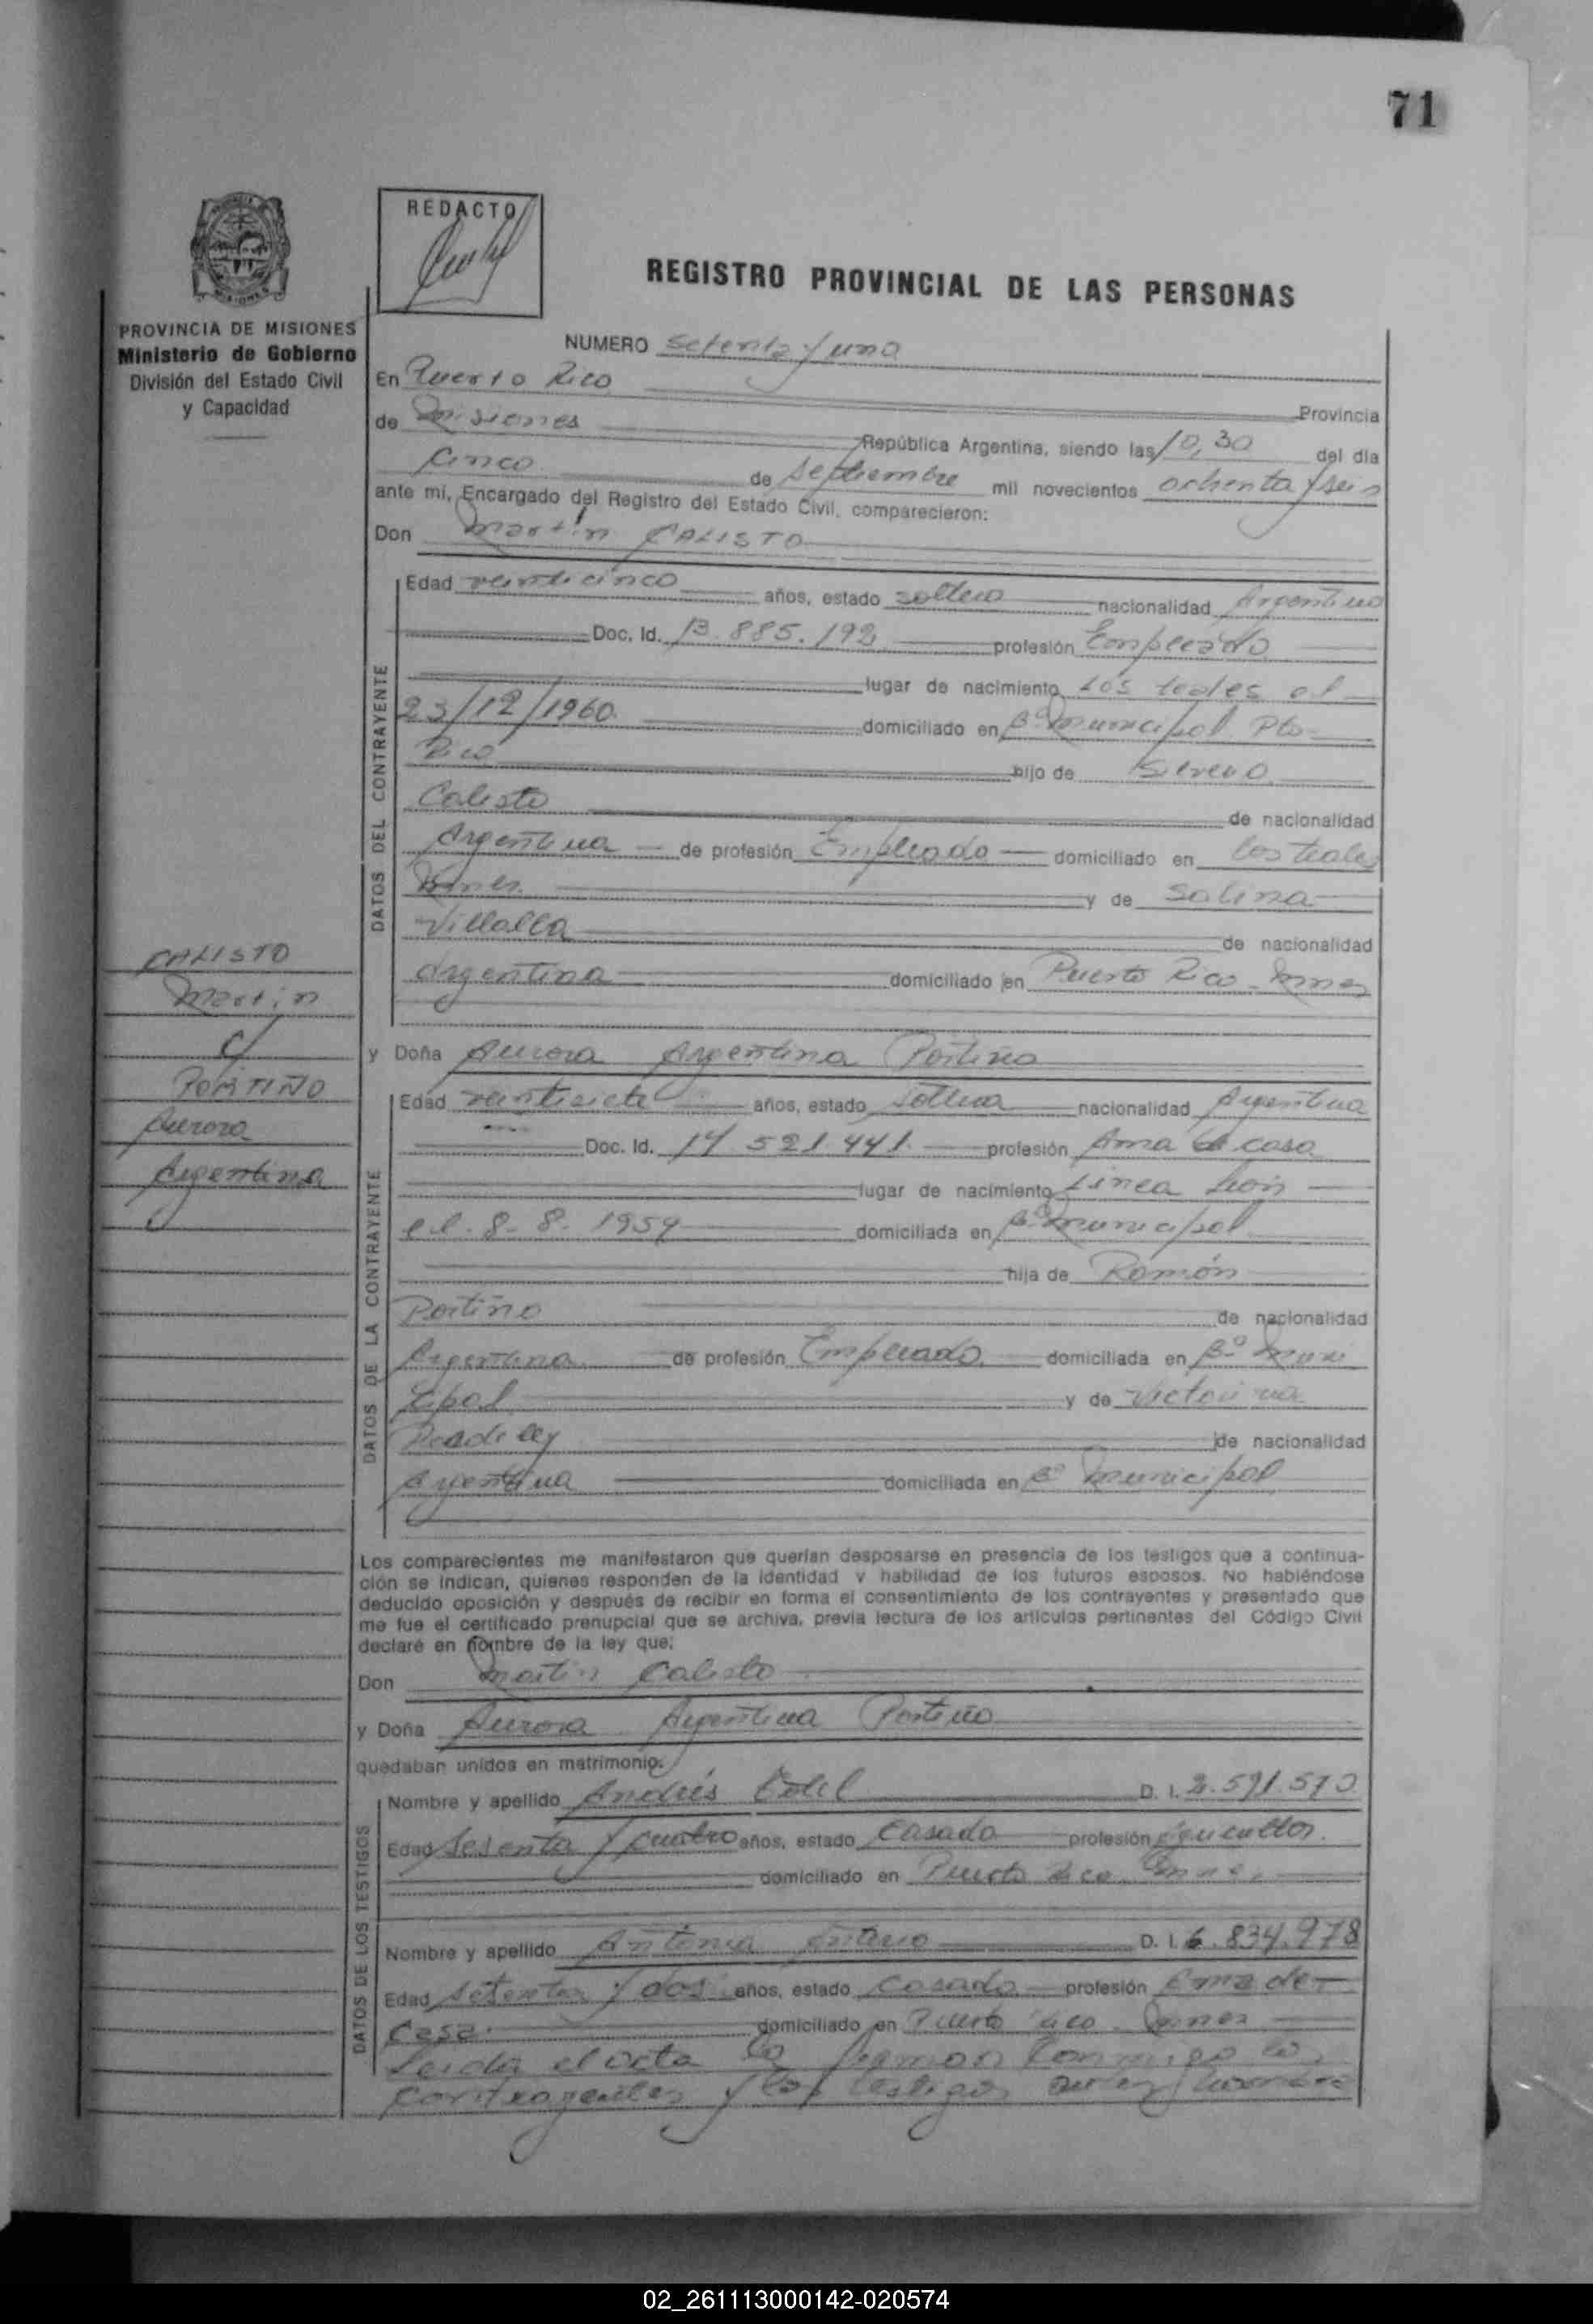 71
REDACTO
REGISTRO PROVINCIAL DE LAS PERSONAS
PROVINCIA DE MISIONES
Ministerio de Gobierno
División del Estado Civil
y Capacidad
NUMERO setenta y uno
En Puerto Rico Provincia
de Misiones República Argentina, siendo las 10,30 del día
cinco de septiembre mil novecientos ochenta y seis
ante mí, Encargado del Registro del Estado Civil, comparecieron:
Don Martín CALISTO
DATOS DEL CONTRAYENTE
Edad veinticinco años, estado soltero nacionalidad Argentino
Doc. Id. 13.885.192 profesión Empleado
lugar de nacimiento Los teales el
23/12/1960 domiciliado en Bº Municipal Pto
Rico hijo de Silverio
Calisto de nacionalidad
Argentina de profesión Empleado domiciliado en Los teales
Mnes. y de Salina
Villalba de nacionalidad
Argentina domiciliado en Puerto Rico - Mnes
CALISTO
Martin
c/
PORTIÑO
Aurora
Argentina
y Doña Aurora Argentina Portiño
DATOS DE LA CONTRAYENTE
Edad veintisiete años, estado soltera nacionalidad Argentina
Doc. Id. 14.521.441 profesión Ama de casa
lugar de nacimiento Linea León
el 8-8-1959 domiciliada en Bº Municipal
hija de Ramón
Portiño de nacionalidad
Argentina de profesión Empleado domiciliada en Bº Muni
cipal y de Victorina
de nacionalidad
Argentina domiciliada en Bº Municipal
Los comparecientes me manifestaron que querían desposarse en presencia de los testigos que a continua-
ción se indican, quienes responden de la identidad y habilidad de los futuros esposos. No habiéndose
deducido oposición y después de recibir en forma el consentimiento de los contrayentes y presentado que
me fue el certificado prenupcial que se archiva, previa lectura de los artículos pertinentes del Código Civil
declaré en nombre de la ley que:
Don Martin Calisto
y Doña Aurora Argentina Portiño
quedaban unidos en matrimonio.
DATOS DE LOS TESTIGOS
Nombre y apellido Andrés D. I. 2.591.570
Edad sesenta y cuatro años, estado Casado profesión Agricultor
domiciliado en Puerto Rico Mnes.
Nombre y apellido Antonia D. I. 6.834.978
Edad setenta y dos años, estado casada profesión Ama de
Casa. domiciliado en Puerto Rico - Mnes
Leida el acta la firman conmigo los
contrayentes y los testigos antes nombra
02_261113000142-020574